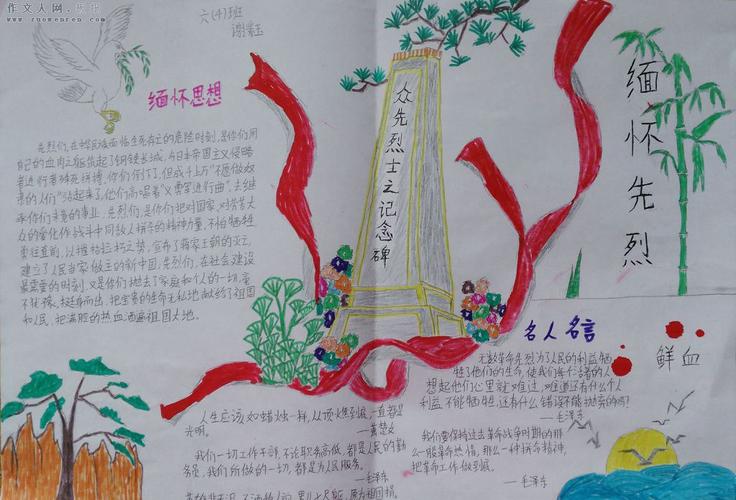 作文人网
www.zuowenren.com
六(4)班
缅怀思想
先烈们,在中华民族面临生死存亡的危险时刻,是你们用
自己的血肉之躯筑起了钢铁长城,今日本帝国主义侵略
者进行着殊死拼搏,你们倒下了,但成千上万“不愿做奴
隶的人们”站起来了,他们高唱着“义勇军进行曲”,去继
承你们未竟的事业。先烈们,是你们把对国家,对劳苦大
众的爱化作战斗中同敌人拼杀的精神力量,不怕牺牲
勇往直前,以摧枯拉朽之势,宣布了蒋家王朝的灭亡,
建立了人民当家做主的新中国。先烈们,在社会建设
最需要的时刻,又是你们抛去了家庭和个人的一切,毫
不犹豫,挺身而出,把宝贵的生命无私地献给了祖国
和人民,把满腔的热血洒遍祖国大地。
众先烈士之记念碑
缅怀先烈
名人名言
无数革命先烈为了人民的利益牺
牲了他们的生命,使我们每个活着的人
想起他们心里就难过,难道还有什么个人
利益不能牺牲,还有什么错误不能抛弃的吗?
—毛泽东
鲜血
我们要保持过去革命战争时期的那
么一股革命热情,那么一种拼命精神,
把革命工作做到底。
—毛泽东
人生应该如蜡烛一样,从顶燃到底,一直都是
光明。
—萧楚女
我们一切工作干部,不论职务高低,都是人民的勤
务员,我们所做的一切,都是为人民服务。
—毛泽东